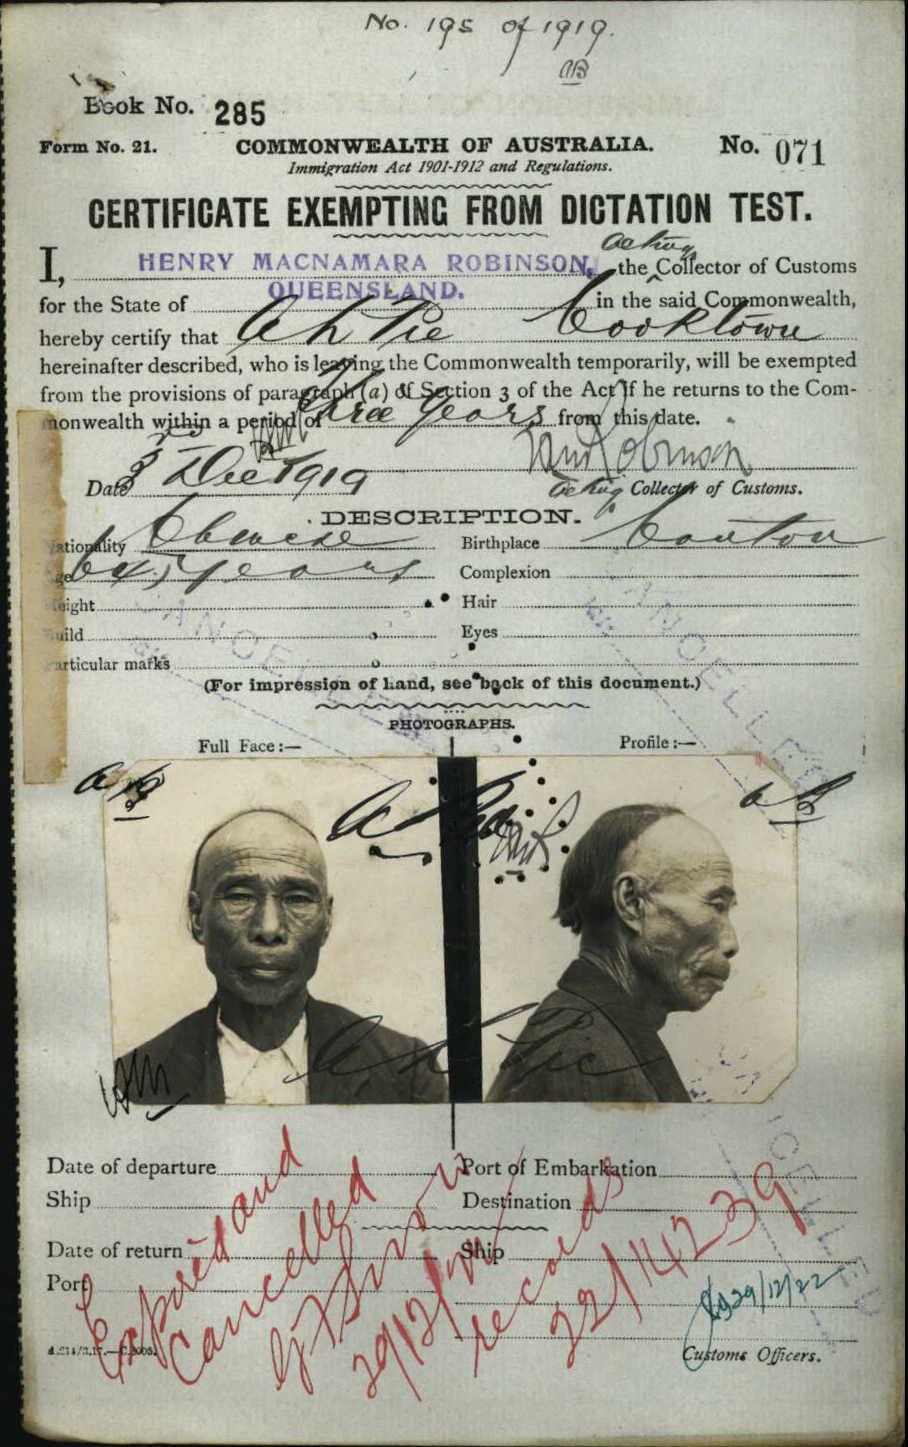 No. 195 of 1919.
AB
Book No. 285
Form No. 21. COMMONWEALTH OF AUSTRALIA. No. 071
Immigration Act 1901-1912 and Regulations.
CERTIFICATE EXEMPTING FROM DICTATION TEST.
I, HENRY MACNAMARA ROBINSON, acting the Collector of Customs
for the State of QUEENSLAND. in the said Commonwealth,
hereby certify that Ah Pie Cooktown
hereinafter described, who is leaving the Commonwealth temporarily, will be exempted
from the provisions of paragraph (a) of Section 3 of the Act if he returns to the Com-
monwealth within a period of three years from this date.
Date 3rd Dec 1919
acting Collector of Customs.
DESCRIPTION.
Nationality Chinese Birthplace Canton
Age 64 years Complexion
Height Hair
Build Eyes
Particular marks
(For impression of hand, see back of this document.)
PHOTOGRAPHS.
Full Face:— Profile:—
Ah Pie
CANCELLED
CANCELLED
Date of departure Port of Embarkation
Ship Destination
Date of return Ship
Port
CANCELLED
Expired and
Cancelled
records
22/14239
29/12/22
Customs Officers.